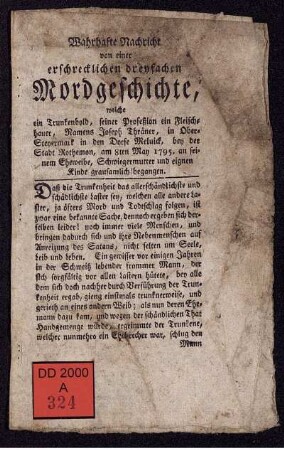 Wahrhafte Nachricht
von einer
erschrecklichen dreyfachen
Mordgeschichte,
welche
ein Trunkenbold, seiner Profeßion ein Fleisch-
hauer, Namens Joseph Thräner, in Ober-
Steyermark in den Dorfe Melnick, bey der
Stadt Rothemon, am 8ten May 1795. an sei-
nem Eheweibe, Schwiegermutter und eignen
Kinde grausamlich begangen.
Daß die Trunkenheit das allerschändlichste und
schädlichste laster sey, welchen alle andere la-
ster, ja öfters Mord und Todschlag folgen, ist
zwar eine bekannte Sache, dennoch ergeben sich der-
selben leider! noch immer viele Menschen, und
bringen dadurch sich und ihre Nebenmenschen auf
Anreizung des Satans, nicht selten um Seele,
leib und leben. Ein gewisser vor einigen Jahren
in der Schweitz lebender frommer Mann, der
sich sorgfältig vor allen lastern hütete, der alle
dem sich doch nachher durch Verführung der Trun-
kenheit ergab, gieng einsmals trunknerweise, und
grieth an eines andern Weib; als nun deren Ehe-
mann dazu kam, und wegen der schändlichen That
Handgemenge würde, ergrimmte der Trunkene,
welcher nunmehro ein Ehebrecher war, schlug den
Mann
DD 2000
A
324